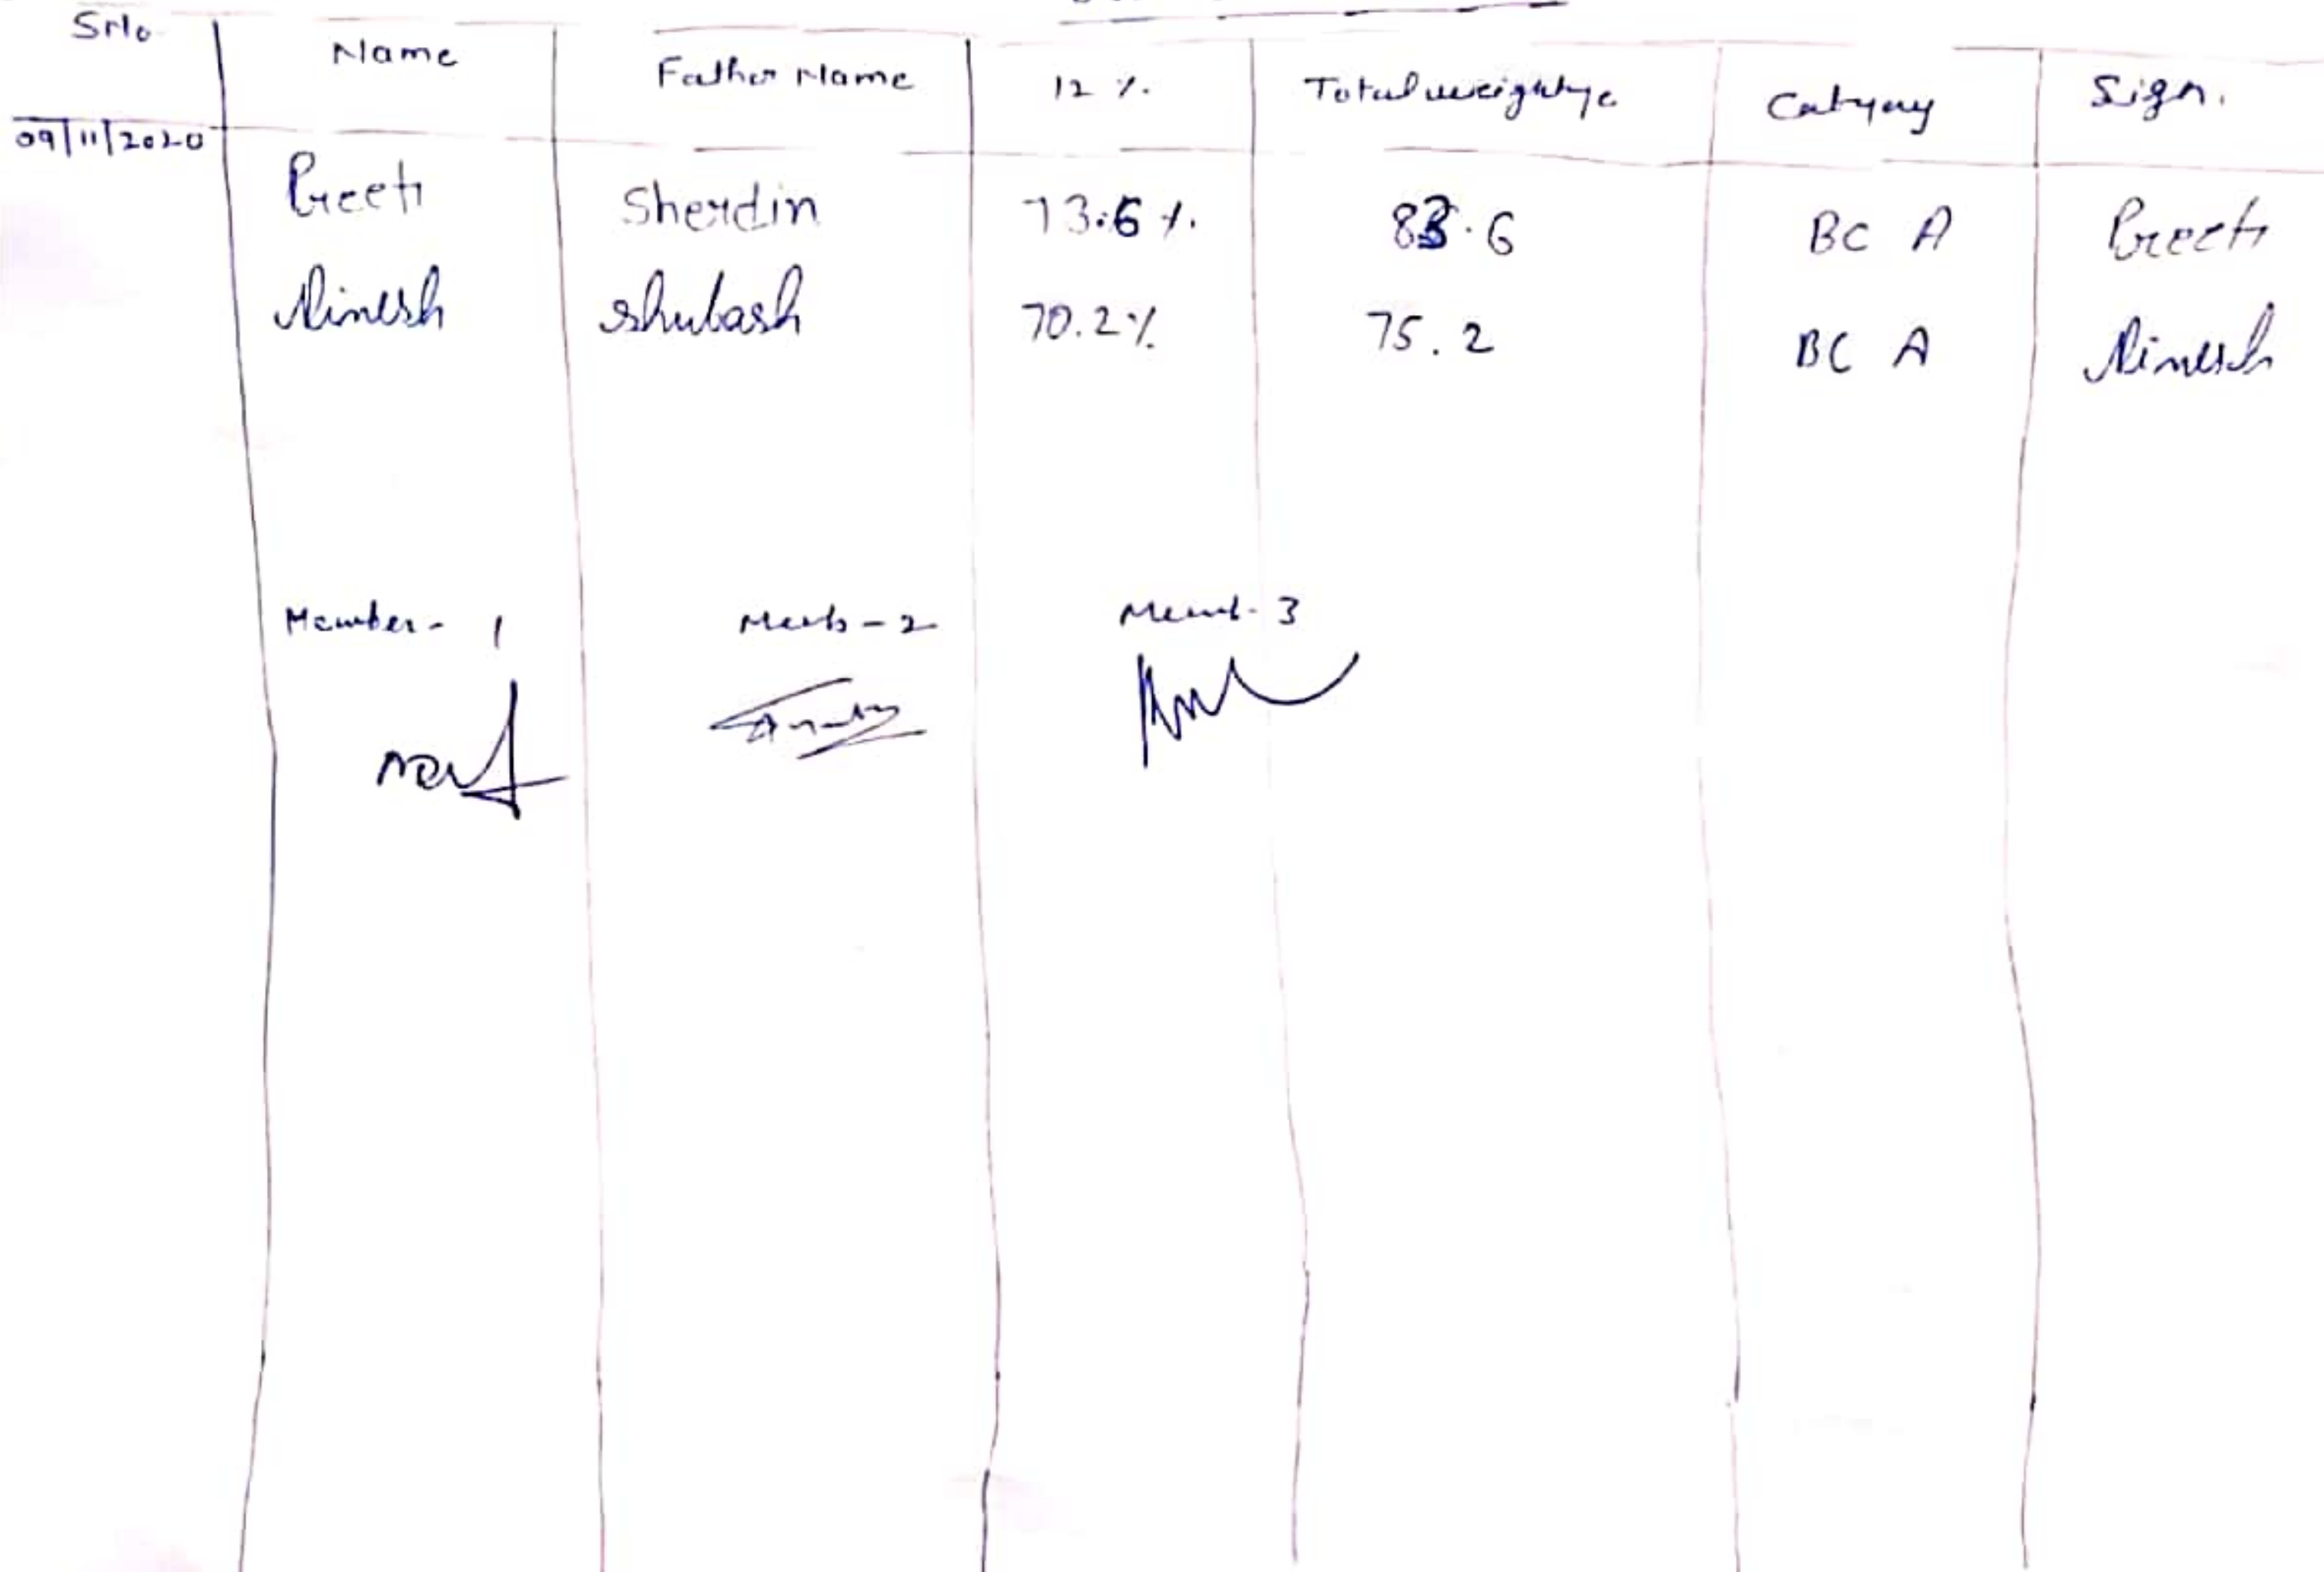 SrNo. Name Father Name 12 %. Total weightge Category Sign.
09/11/2020
Preeti Sherdin 73.6 %. 83.6 BC A Preeti
Dinesh Shubash 70.2 % 75.2 BC A Dinesh
Member - 1 Memb - 2 Memb - 3